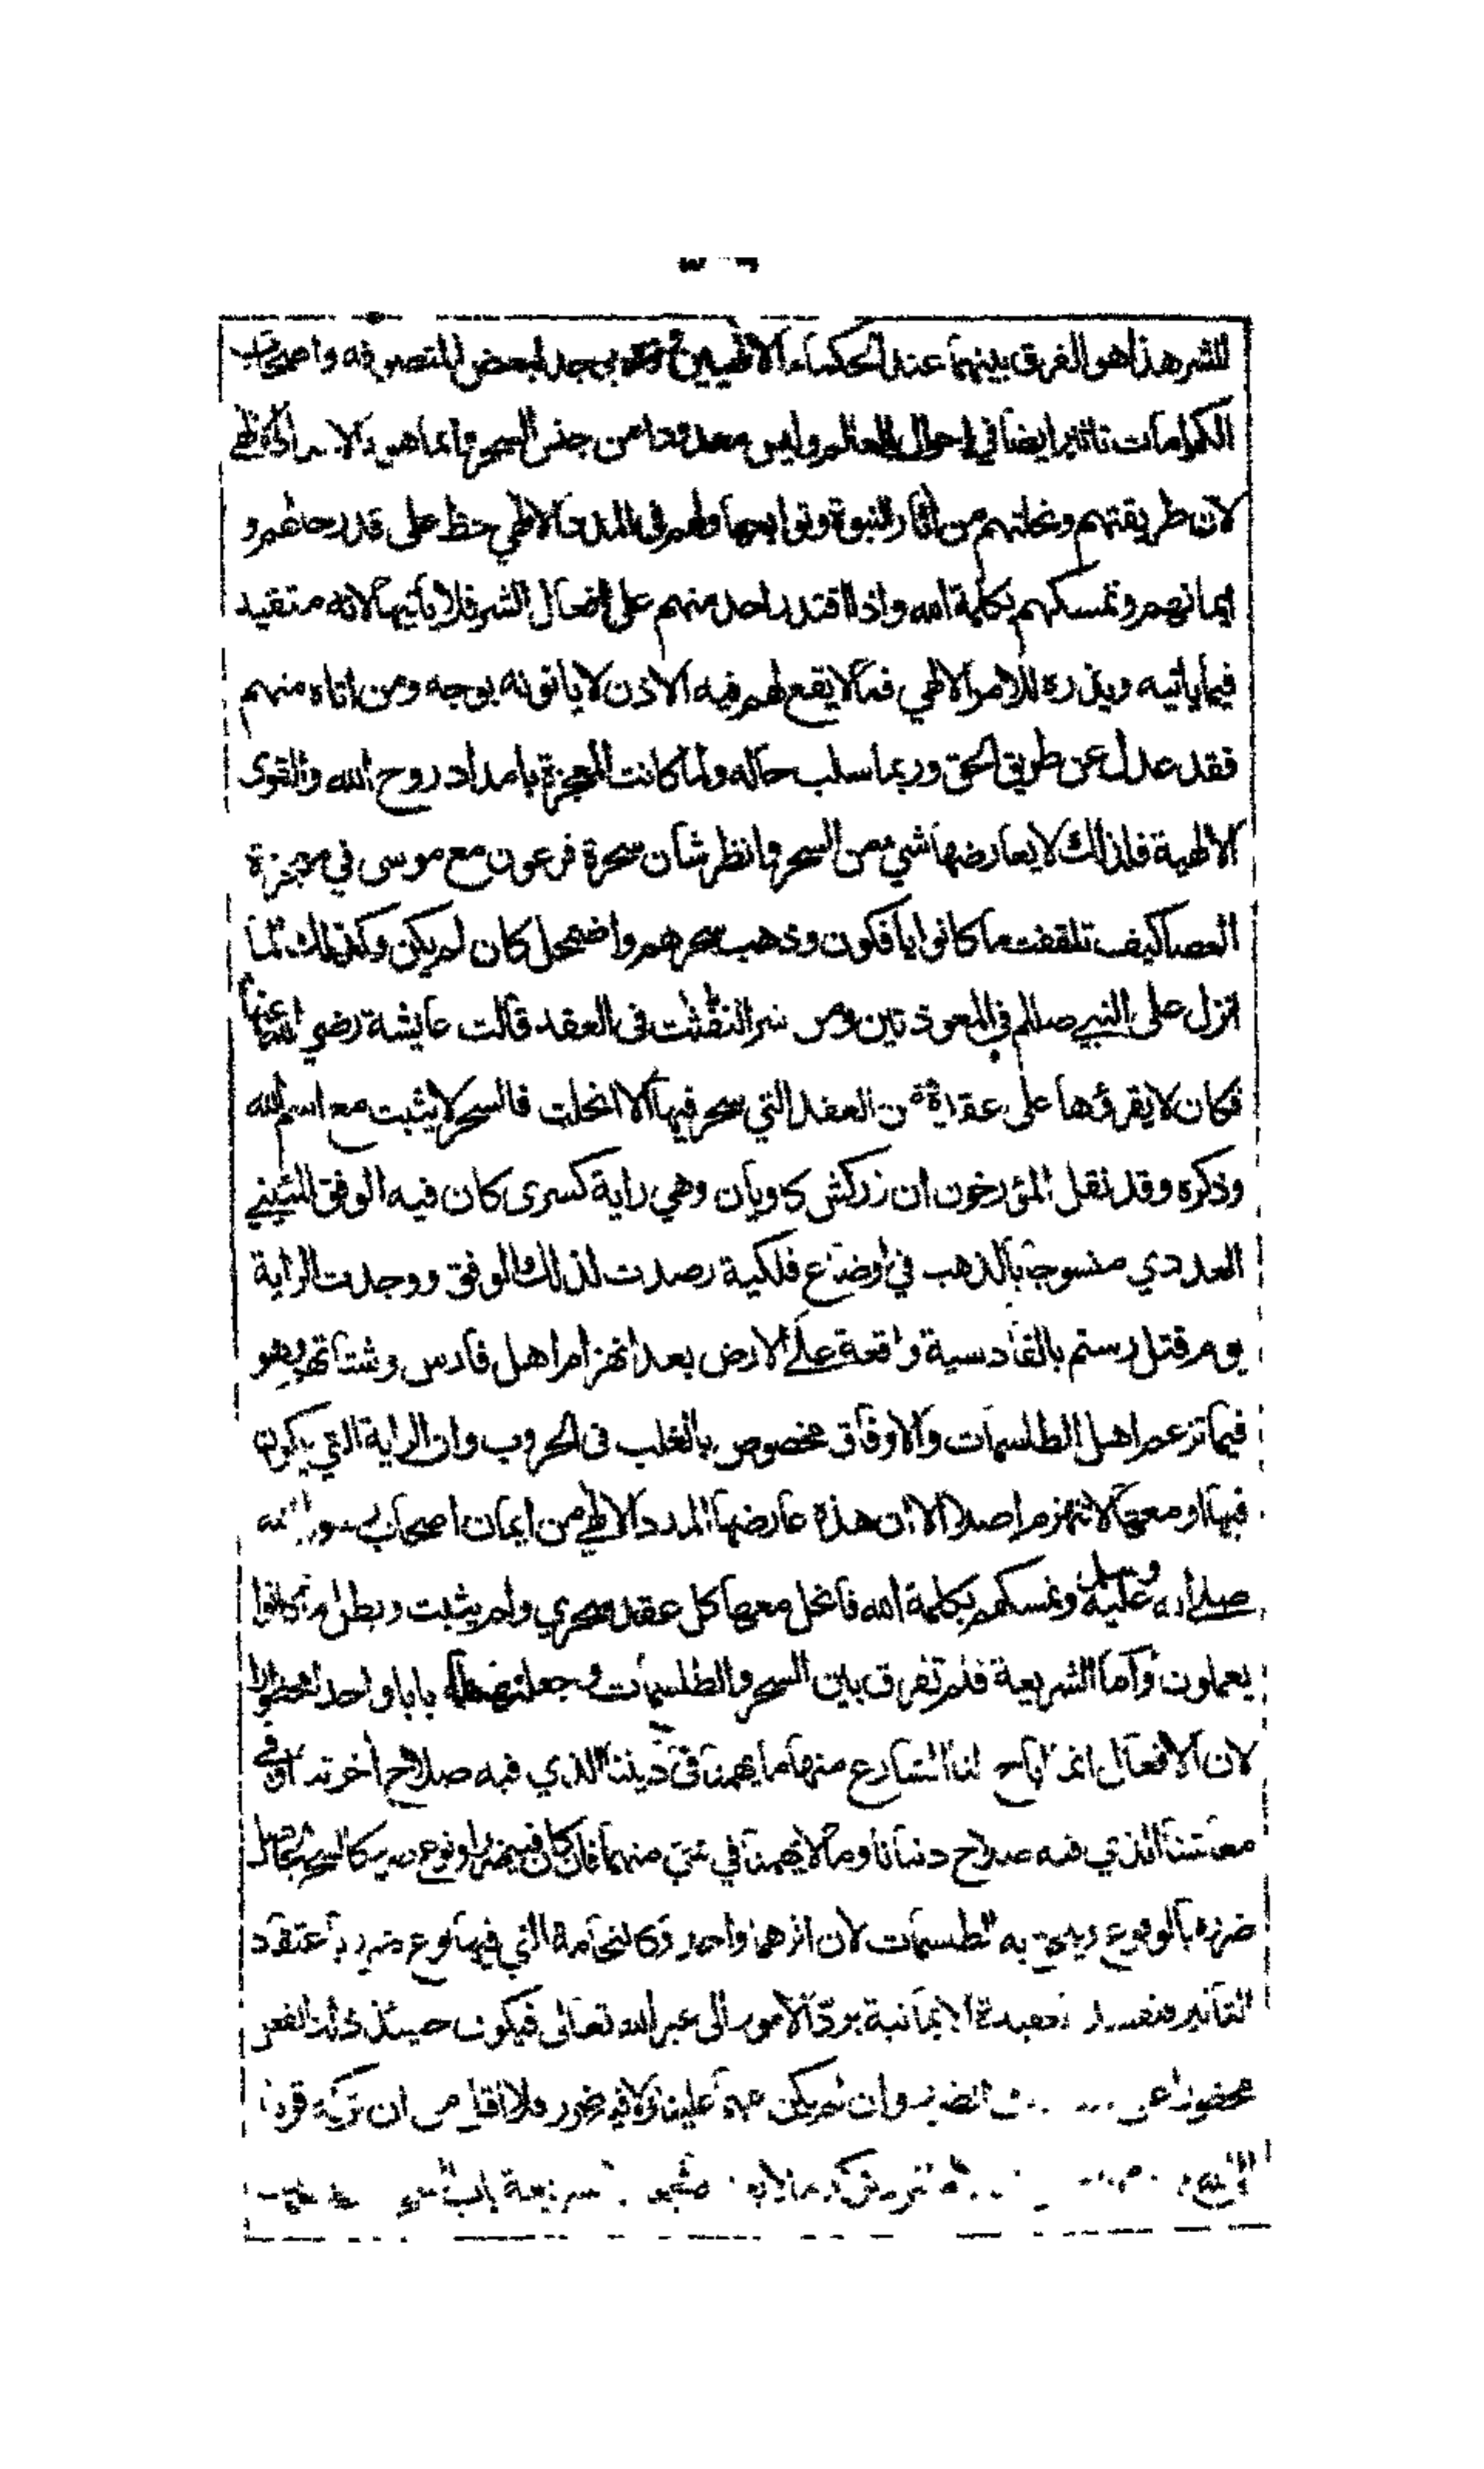 للشر هذا هو الفرق بينهما عند الحكماء الالهيين وقد يوجد لبعض المتصوفه واصحاب
الكرامات تاثير ايضا في احوال العالم وليس معدودا من جنس السحر وانما هو بالامداد الالهي
لان طريقتهم ونحلتهم من اثار النبوة وتوابعها ولهم في المدد الالهي حظ على قدر حالهم و
ايمانهم وتمسكهم بكلمة الله واذا اقتدر احد منهم على افعال الشر فلا ياتيها لانه متقيد
فيما ياتيه ويذره للامر الالهي فما لا يقع لهم فيه الاذن لا ياتونه بوجه ومن اتاه منهم
فقد عدل عن طريق الحق وربما سلب حاله ولما كانت المعجزة بامداد روح الله والقوى
الالهية فلذلك لا يعارضها شيء من السحر وانظر شان سحرة فرعون مع موسى في معجزة
العصا كيف تلقفت ما كانوا يافكون وذهب سحرهم واضمحل كان لم يكن وكذلك لما
انزل على النبي صللم في المعوذتين ومن شر النفثت في العقد قالت عايشة رضي الله عنها
فكان لا يقرؤها على عقدة من العقد التي سحر فيها الا انحلت فالسحر لا يثبت مع اسم الله
وذكره وقد نقل المؤرخون ان زركش كاويان وهي راية كسرى كان فيه الوفق المئيني
العددي منسوجا بالذهب في اوضاع فلكية رصدت لذلك الوفق ووجدت الراية
يوم قتل رستم بالقادسية واقعة على الارض بعد انهزام اهل فارس وشتاتهم وهو
فيما تزعم اهل الطلسمات والاوفاق مخصوص بالغلب في الحروب وان الراية التي يكون
فيها او معها لا تنهزم اصلا الا ان هذه عارضها المدد الالهي من ايمان اصحاب رسول الله
صلى الله عليه وسلم وتمسكهم بكلمة الله فانحل معها كل عقد سحري ولم يثبت وبطل ما كانوا
يعملون واما الشريعة فلم تفرق بين السحر والطلسمات وجعلته كله بابا واحدا محظورا
لان الافعال انما اباح لنا الشارع منها ما يهمنا في ديننا الذي فيه صلاح اخرتنا او في
معاشنا الذي فيه صلاح دنيانا وما لا يهمنا في شئ منهما فان كان فيه ضرر او نوع ضرر كالسحر الحاصل
ضرره بالوقوع ويلحق به الطلسمات لان اثرهما واحد وكالنجامة التي فيها نوع ضرر باعتقاد
التاثير فتفسد العقيدة الايمانية برد الامور الى غير الله تعالى فيكون حينئذ ذلك الفعل
محظورا على الضرر وان لم يكن مهما علينا ولا فيه ضرر فلا اقل من ان تركه قربا
الشريعة باب السحر